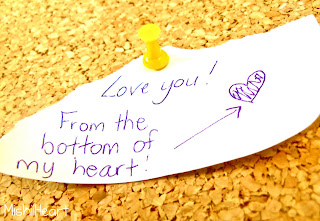 Love you!
From the
bottom of
my heart!
MishiHeart